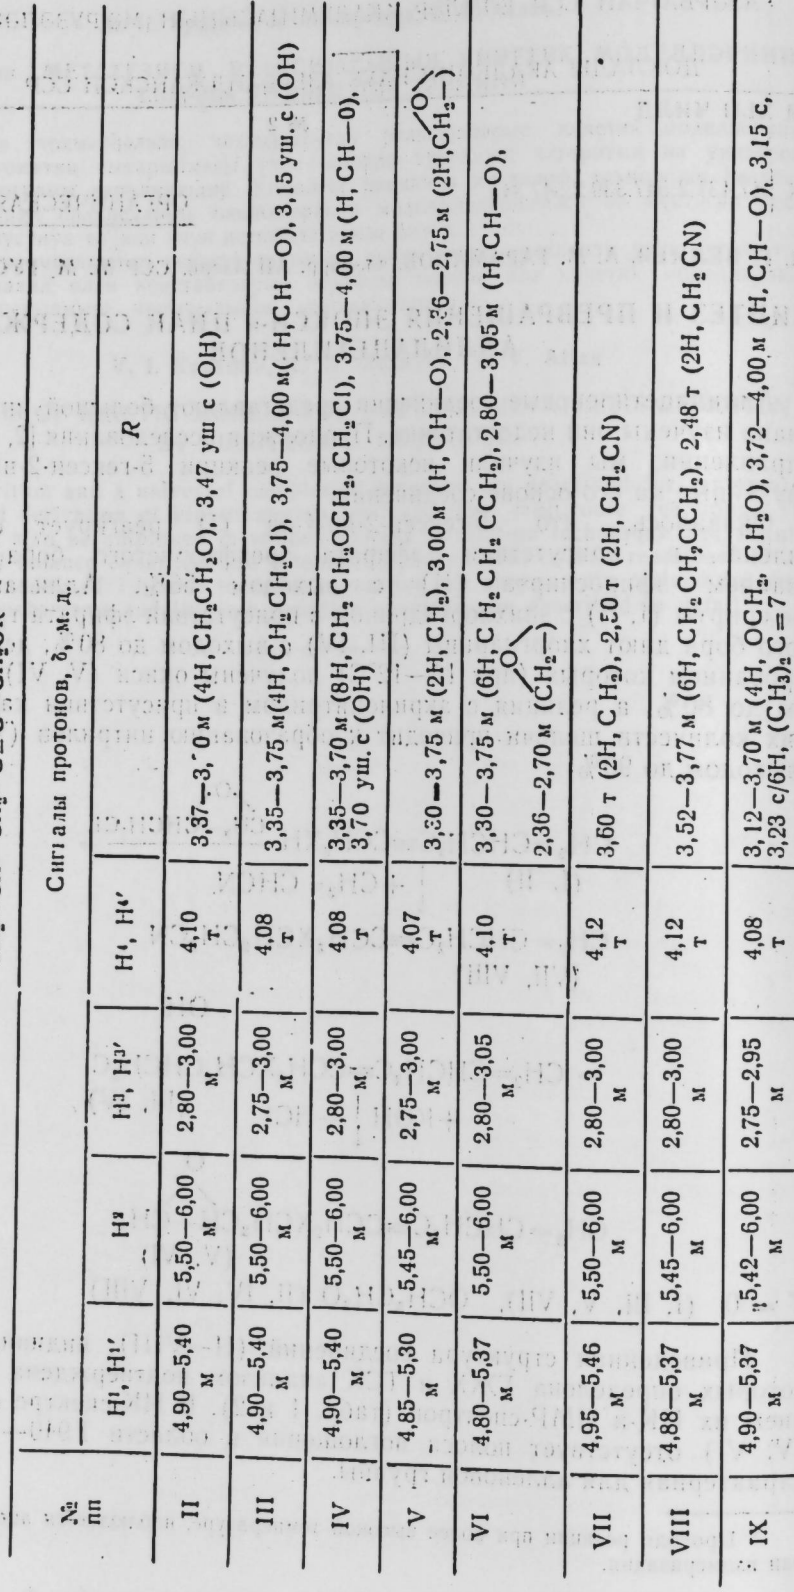 № пп
Сигналы протонов, δ, м. д.
H¹, H¹′ H² H³, H³′ H⁴, H⁴′ R
II 4,90—5,40 м 5,50—6,00 м 2,80—3,00 м 4,10 т 3,37—3,70 м (4H, CH₂CH₂O), 3,47 уш с (OH)
III 4,90—5,40 м 5,50—6,00 м 2,75—3,00 м 4,08 т 3,35—3,75 м(4H, CH₂CH₂Cl), 3,75—4,00 м( H,CH—O), 3,15 уш. с (OH)
IV 4,90—5,40 м 5,50—6,00 м 2,80—3,00 м 4,08 т 3,35—3,70 м (8H, CH₂ CH₂OCH₂, CH₂Cl), 3,75—4,00 м (H, CH—O),
3,70 уш. (OH)
V 4,85—5,30 м 5,45—6,00 м 2,75—3,00 м 4,07 т 3,30—3,75 м (2H CH₂), 3,00 м (H, CH—O), 2,36—2,75 м (2H,CH₂—)
O
VI 4,80—5,37 м 5,50—6,00 м 2,80—3,05 м 4,10 т 3,30—3,75 м (6H, CH₂CH₂ CCH₂), 2,80—3,05 м (H, CH—O),
O
2,36—2,70 м (CH₂—)
VII 4,95—5,46 м 5,50—6,00 м 2,80—3,00 м 4,12 т 3,60 т (2H, C H₂), 2,50 т (2H, CH₂CN)
VIII 4,88—5,37 м 5,45—6,00 м 2,80—3,00 м 4,12 т 3,52—3,77 м (6H, CH₂CH₂CCH₂), 2,48 т (2H, CH₂CN)
IX 4,90—5,37 м 5,42—6,00 м 2,75—2,95 м 4,08 т 3,12—3,70 м (4H, OCH₂, CH₂O), 3,72—4,00 м (H, CH—O), 3,15 с,
3,23 с/6H, (CH₃)₂ C=7